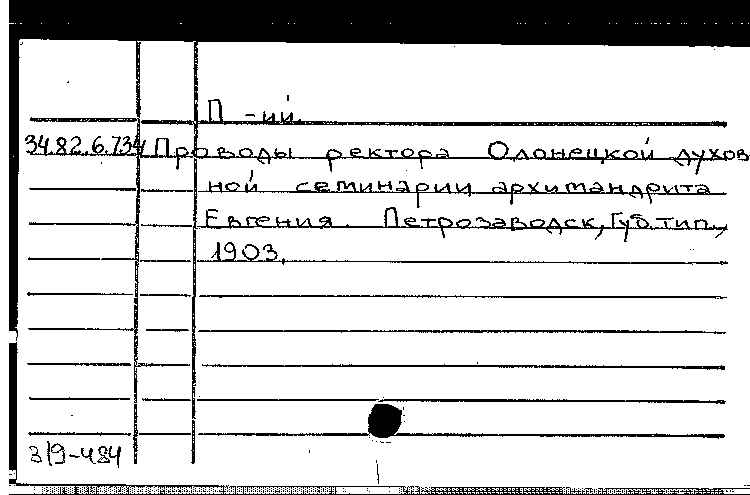 П -ий.
34.82.6.734 Проводы ректора Олонецкой духов
ной семинарии архимандрита
Евгения. Петрозаводск, Губ. тип.,
1903.
3/9-484